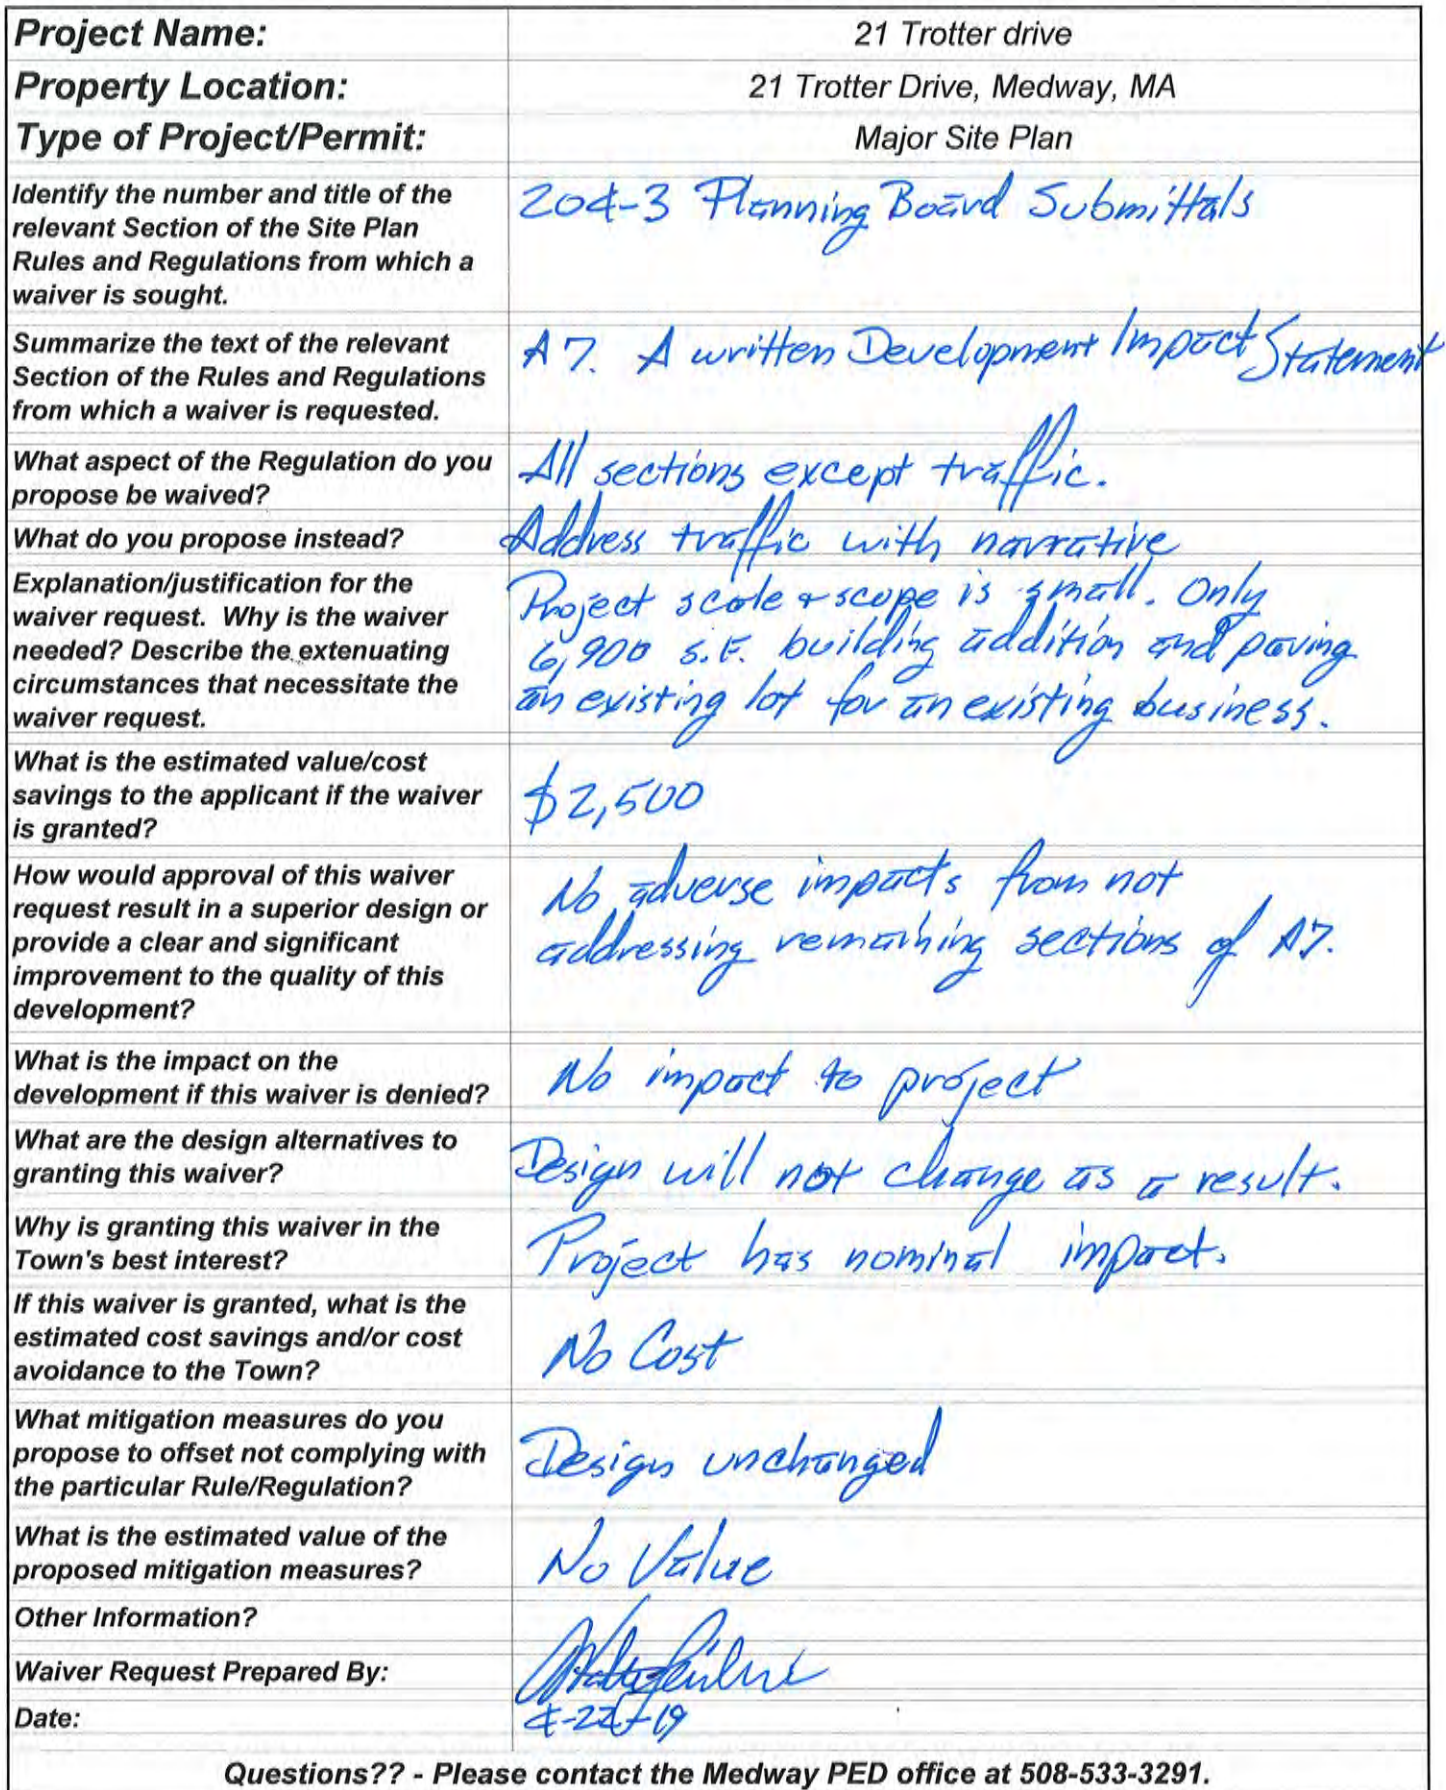 Project Name: 21 Trotter drive
Property Location: 21 Trotter Drive, Medway, MA
Type of Project/Permit: Major Site Plan
Identify the number and title of the
relevant Section of the Site Plan
Rules and Regulations from which a
waiver is sought.
204-3 Planning Board Submittals
Summarize the text of the relevant
Section of the Rules and Regulations
from which a waiver is requested.
A7. A written Development Impact Statement
What aspect of the Regulation do you
propose be waived?
All sections except traffic.
What do you propose instead? Address traffic with narrative
Explanation/justification for the
waiver request. Why is the waiver
needed? Describe the extenuating
circumstances that necessitate the
waiver request.
Project scale + scope is small. Only
6,900 s.F. building addition and paving
an existing lot for an existing business.
What is the estimated value/cost
savings to the applicant if the waiver
is granted?
$2,500
How would approval of this waiver
request result in a superior design or
provide a clear and significant
improvement to the quality of this
development?
No adverse impacts from not
addressing remaining sections of A7.
What is the impact on the
development if this waiver is denied?
No impact to project
What are the design alternatives to
granting this waiver?
Design will not change as a result.
Why is granting this waiver in the
Town's best interest?
Project has nominal impact.
If this waiver is granted, what is the
estimated cost savings and/or cost
avoidance to the Town?
No Cost
What mitigation measures do you
propose to offset not complying with
the particular Rule/Regulation?
Design unchanged
What is the estimated value of the
proposed mitigation measures?
No Value
Other Information?
Waiver Request Prepared By:
Date:
Questions?? - Please contact the Medway PED office at 508-533-3291.